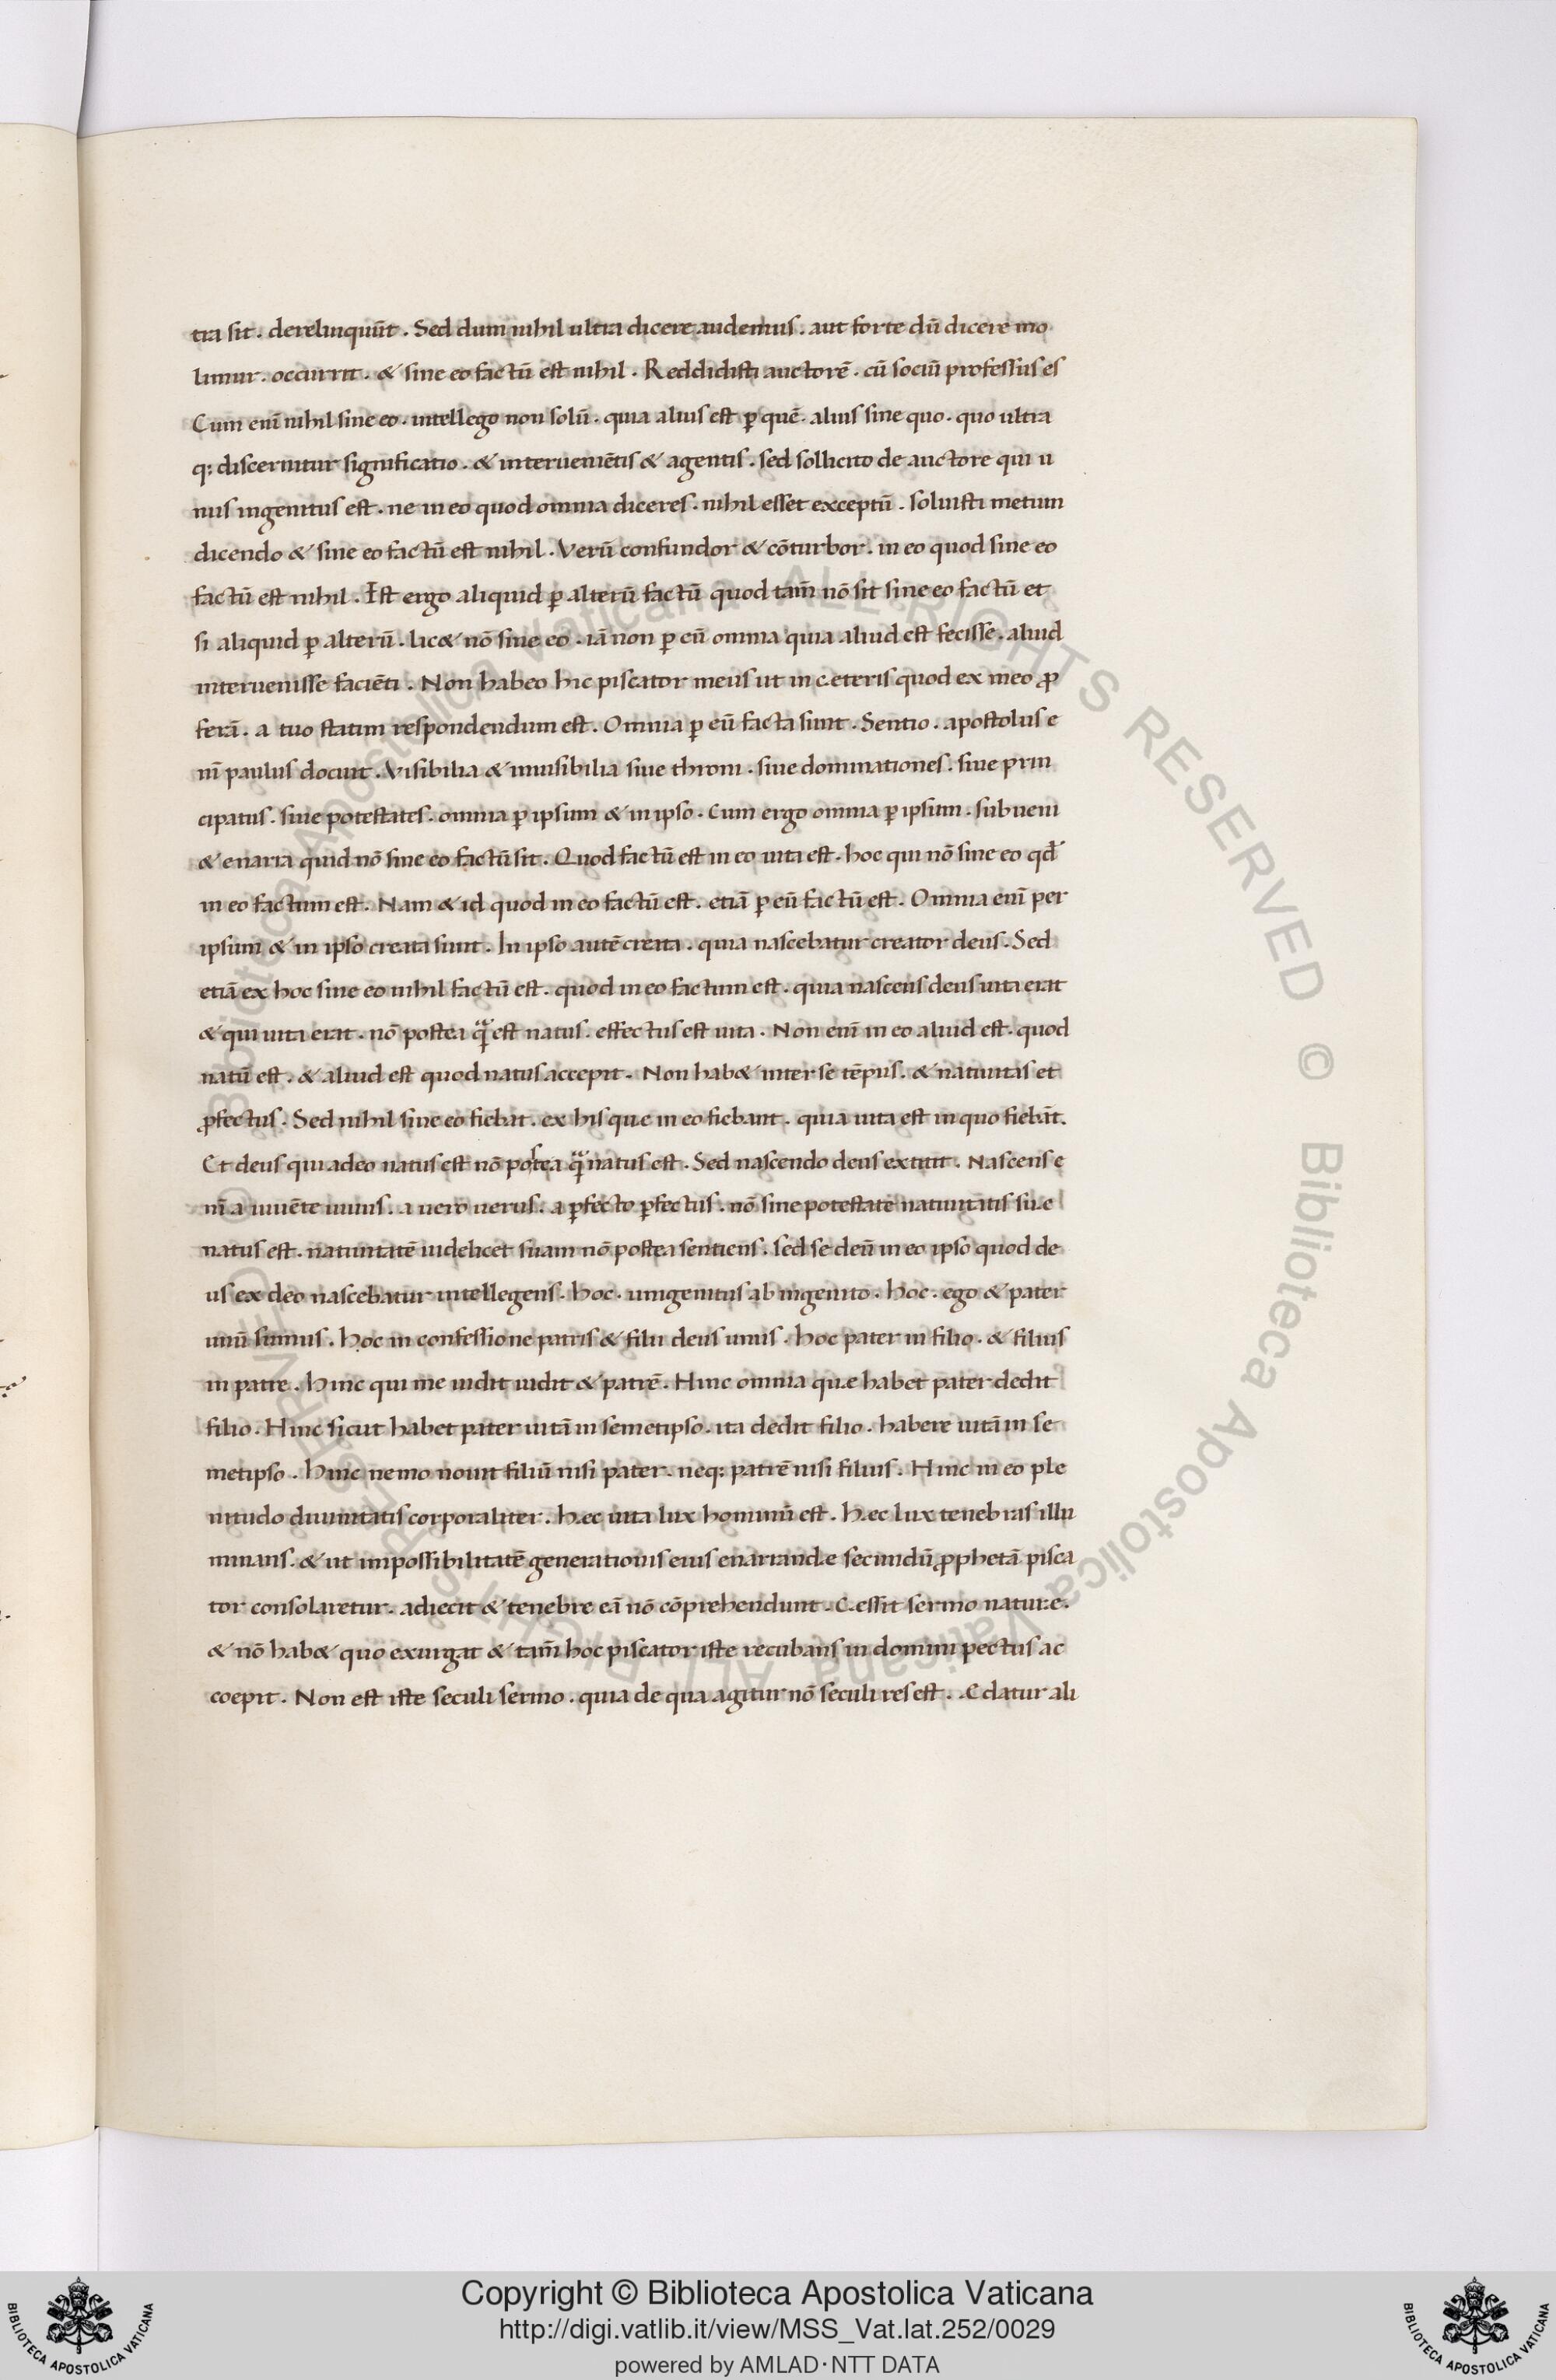 tra sit. derelinquūt. Sed dum nihil ultra dicere audemus. aut forte dū dicere mo
limur. occurrit. & sine eo factū est nihil. Reddidisti auctorē. cū sociū professus es
Cum enī nihil sine eo. intellego non solū. quia alius est ꝑ quē. alius sine quo. quo ultra
q: discernitur significatio. & interueniētis & agentis. sed sollicito de auctore qui u
nus ingenitus est. ne in eo quod omnia diceres. nihil esset exceptū. soluisti metum
dicendo & sine eo factū est nihil. Verū confundor & cōturbor. in eo quod sine eo
factū est nihil. Est ergo aliquid ꝑ alterū factū quod tam̄ nō sit sine eo factū et
si aliquid ꝑ alterū. lic& nō sine eo. iā non ꝑ eū omnia quia aliud est fecisse. aliud
interuenisse faciēti. Non habeo hic piscator meus ut in cęteris quod ex meo ꝓ
ferā. a tuo statim respondendum est. Omnia ꝑ eū facta sunt. Sentio. apostolus e
nī paulus docuit. Visibilia & inuisibilia siue throni. siue dominationes. siue prin
cipatus. siue potestates. omnia ꝑ ipsum & in ipso. Cum ergo omnia ꝑ ipsum. subueni
& enarra quid nō sine eo factū sit. Quod factū est in eo uita est. hoc qui nō sine eo qđ
in eo factum est. Nam & id quod in eo factū est. etiā ꝑ eū factū est. Omnia enī per
ipsum & in ipso creata sunt. In ipso autē creata. quia nascebatur creator deus. Sed
etiā ex hoc sine eo nihil factū est. quod in eo factum est. quia nascens deus uita erat
& qui uita erat. nō postea q̄ est natus. effectus est uita. Non enī in eo aliud est. quod
natū est. & aliud est quod natus accepit. Non hab& inter se tēpus. & natiuitas et
ꝓfectus. Sed nihil sine eo fiebat. ex his quę in eo fiebant. quia uita est in quo fiebāt.
Et deus qui a deo natus est nō postea q̄ natus est. Sed nascendo deus extitit. Nascens e
nī a uiuēte uiuus. a uero uerus. a ꝑfecto ꝑfectus. nō sine potestate natiuitatis suę
natus est. natiuitatē uidelicet suam nō postea sentiens. sed se deū in eo ipso quod de
us ex deo nascebatur intellegens. hoc. unigenitus ab ingenito. hoc. ego & pater
unū sumus. hoc in confessione patris & filii deus unus. hoc pater in filio. & filius
in patre. hinc qui me uidit uidit & patrē. Hinc omnia quę habet pater dedit
filio. Hinc sicut habet pater uitā in semetipso. ita dedit filio. habere uitā in se
metipso. hinc nemo nouit filiū nisi pater. neq: patrē nisi filius. Hinc in eo ple
nitudo diuinitatis corporaliter. hęc uita lux hominū est. hęc lux tenebras illu
minans. & ut impossibilitatē generationis eius enarrandę secundū ꝓphetā pisca
tor consolaretur. adiecit & tenebre eā nō cōprehendunt. Cęssit sermo naturę.
& nō hab& quo exurgat & tam̄ hoc piscator iste recubans in domini pectus ac
coepit. Non est iste seculi sermo. quia de qua agitur nō seculi res est. Ędatur ali
Copyright © Biblioteca Apostolica Vaticana
http://digi.vatlib.it/view/MSS_Vat.lat.252/0029
powered by AMLAD·NTT DATA
BIBLIOTECA APOSTOLICA VATICANA
BIBLIOTECA APOSTOLICA VATICANA